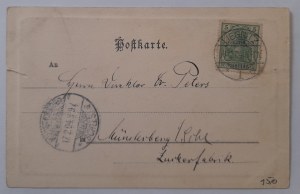 Postkarte.
An
Herrn Direktor Dr. Peters
Münsterberg / Schl.
Zuckerfabrik
150